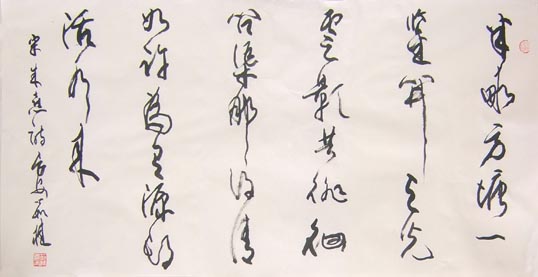 半畝方塘一
鑒開天光
雲影共徘徊
問渠那得清
如許為有源頭
活水來
宋朱熹詩